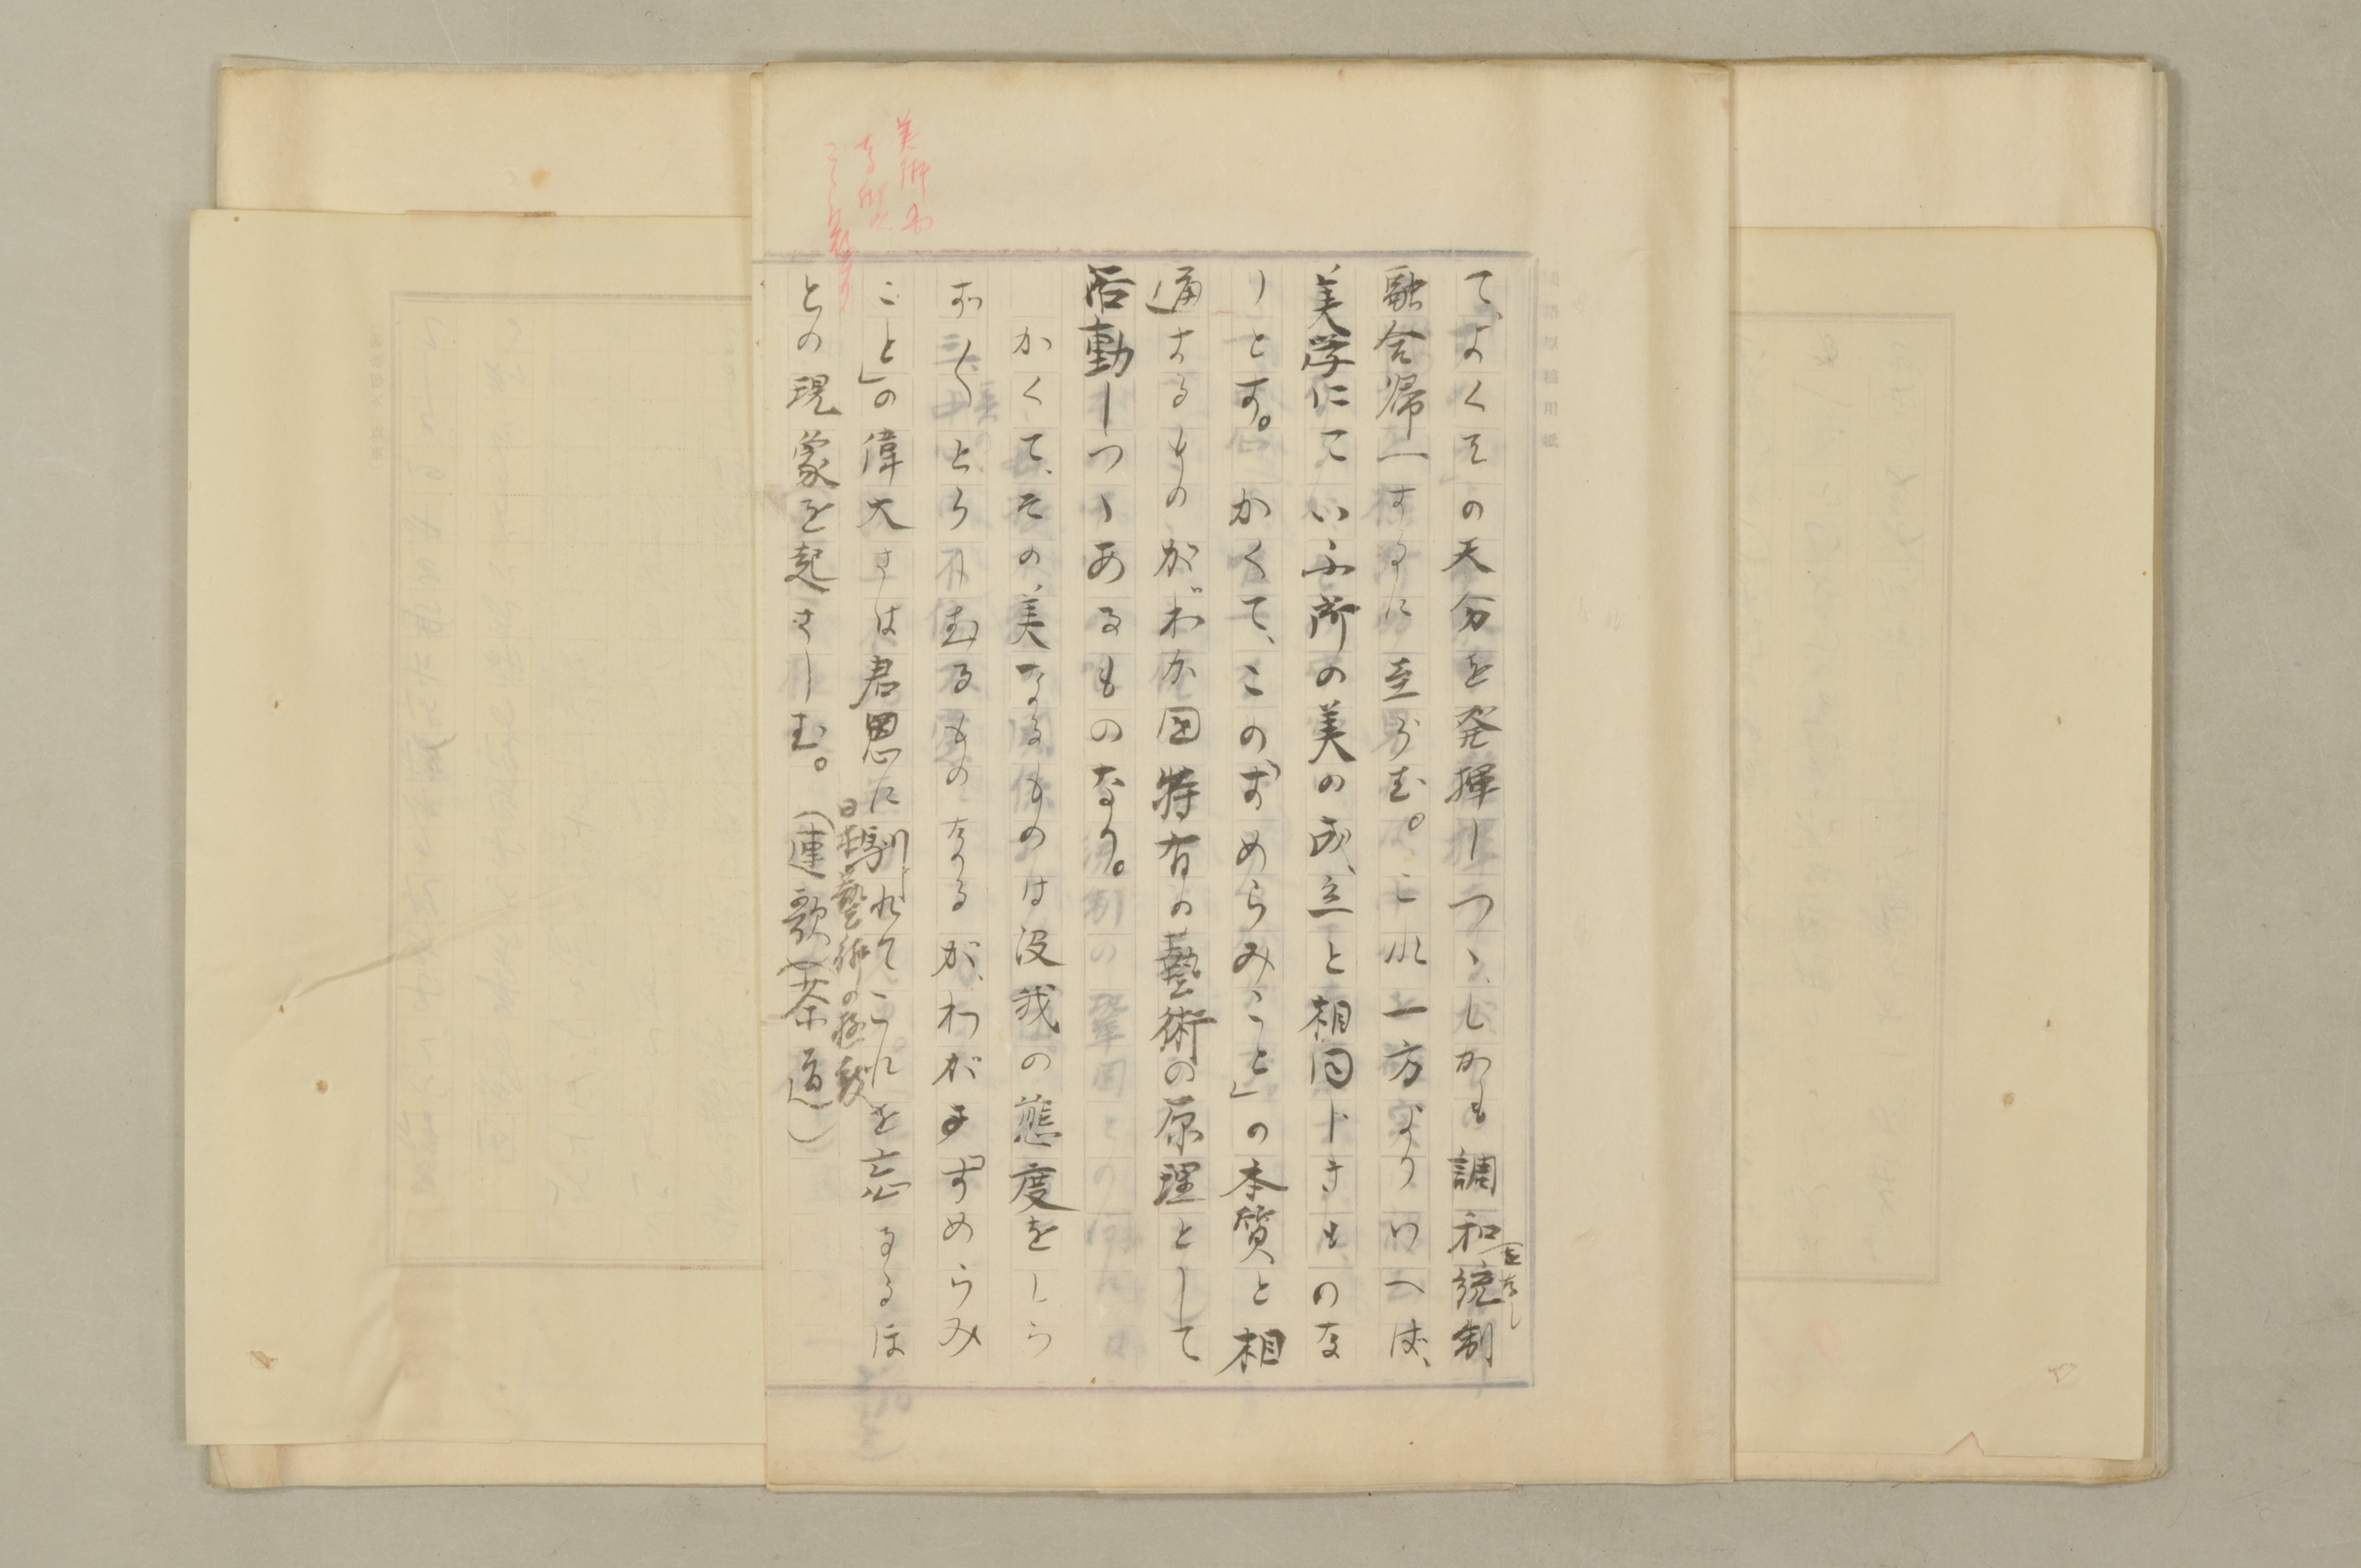 て、よくその天分を発揮しつゝ、しかも調和統制
融合帰一するに至らむ。これ一方よりいへば、
美学にていふ所の美の成立と相同じきものな
りとす。かくて、この「すめらみこと」の本質と相
通するものが、わが国特有の藝術の原理として
活動しつゝあるものなり。
かくて、その美なるものは没我の態度をしら
ず〳〵とらしむるものなるが、わが「すめらみ
こと」の偉大さは君恩に馴れてこれを忘るるほ
日本藝術の極致
との現象を起さしむ。(連歌)(茶道)